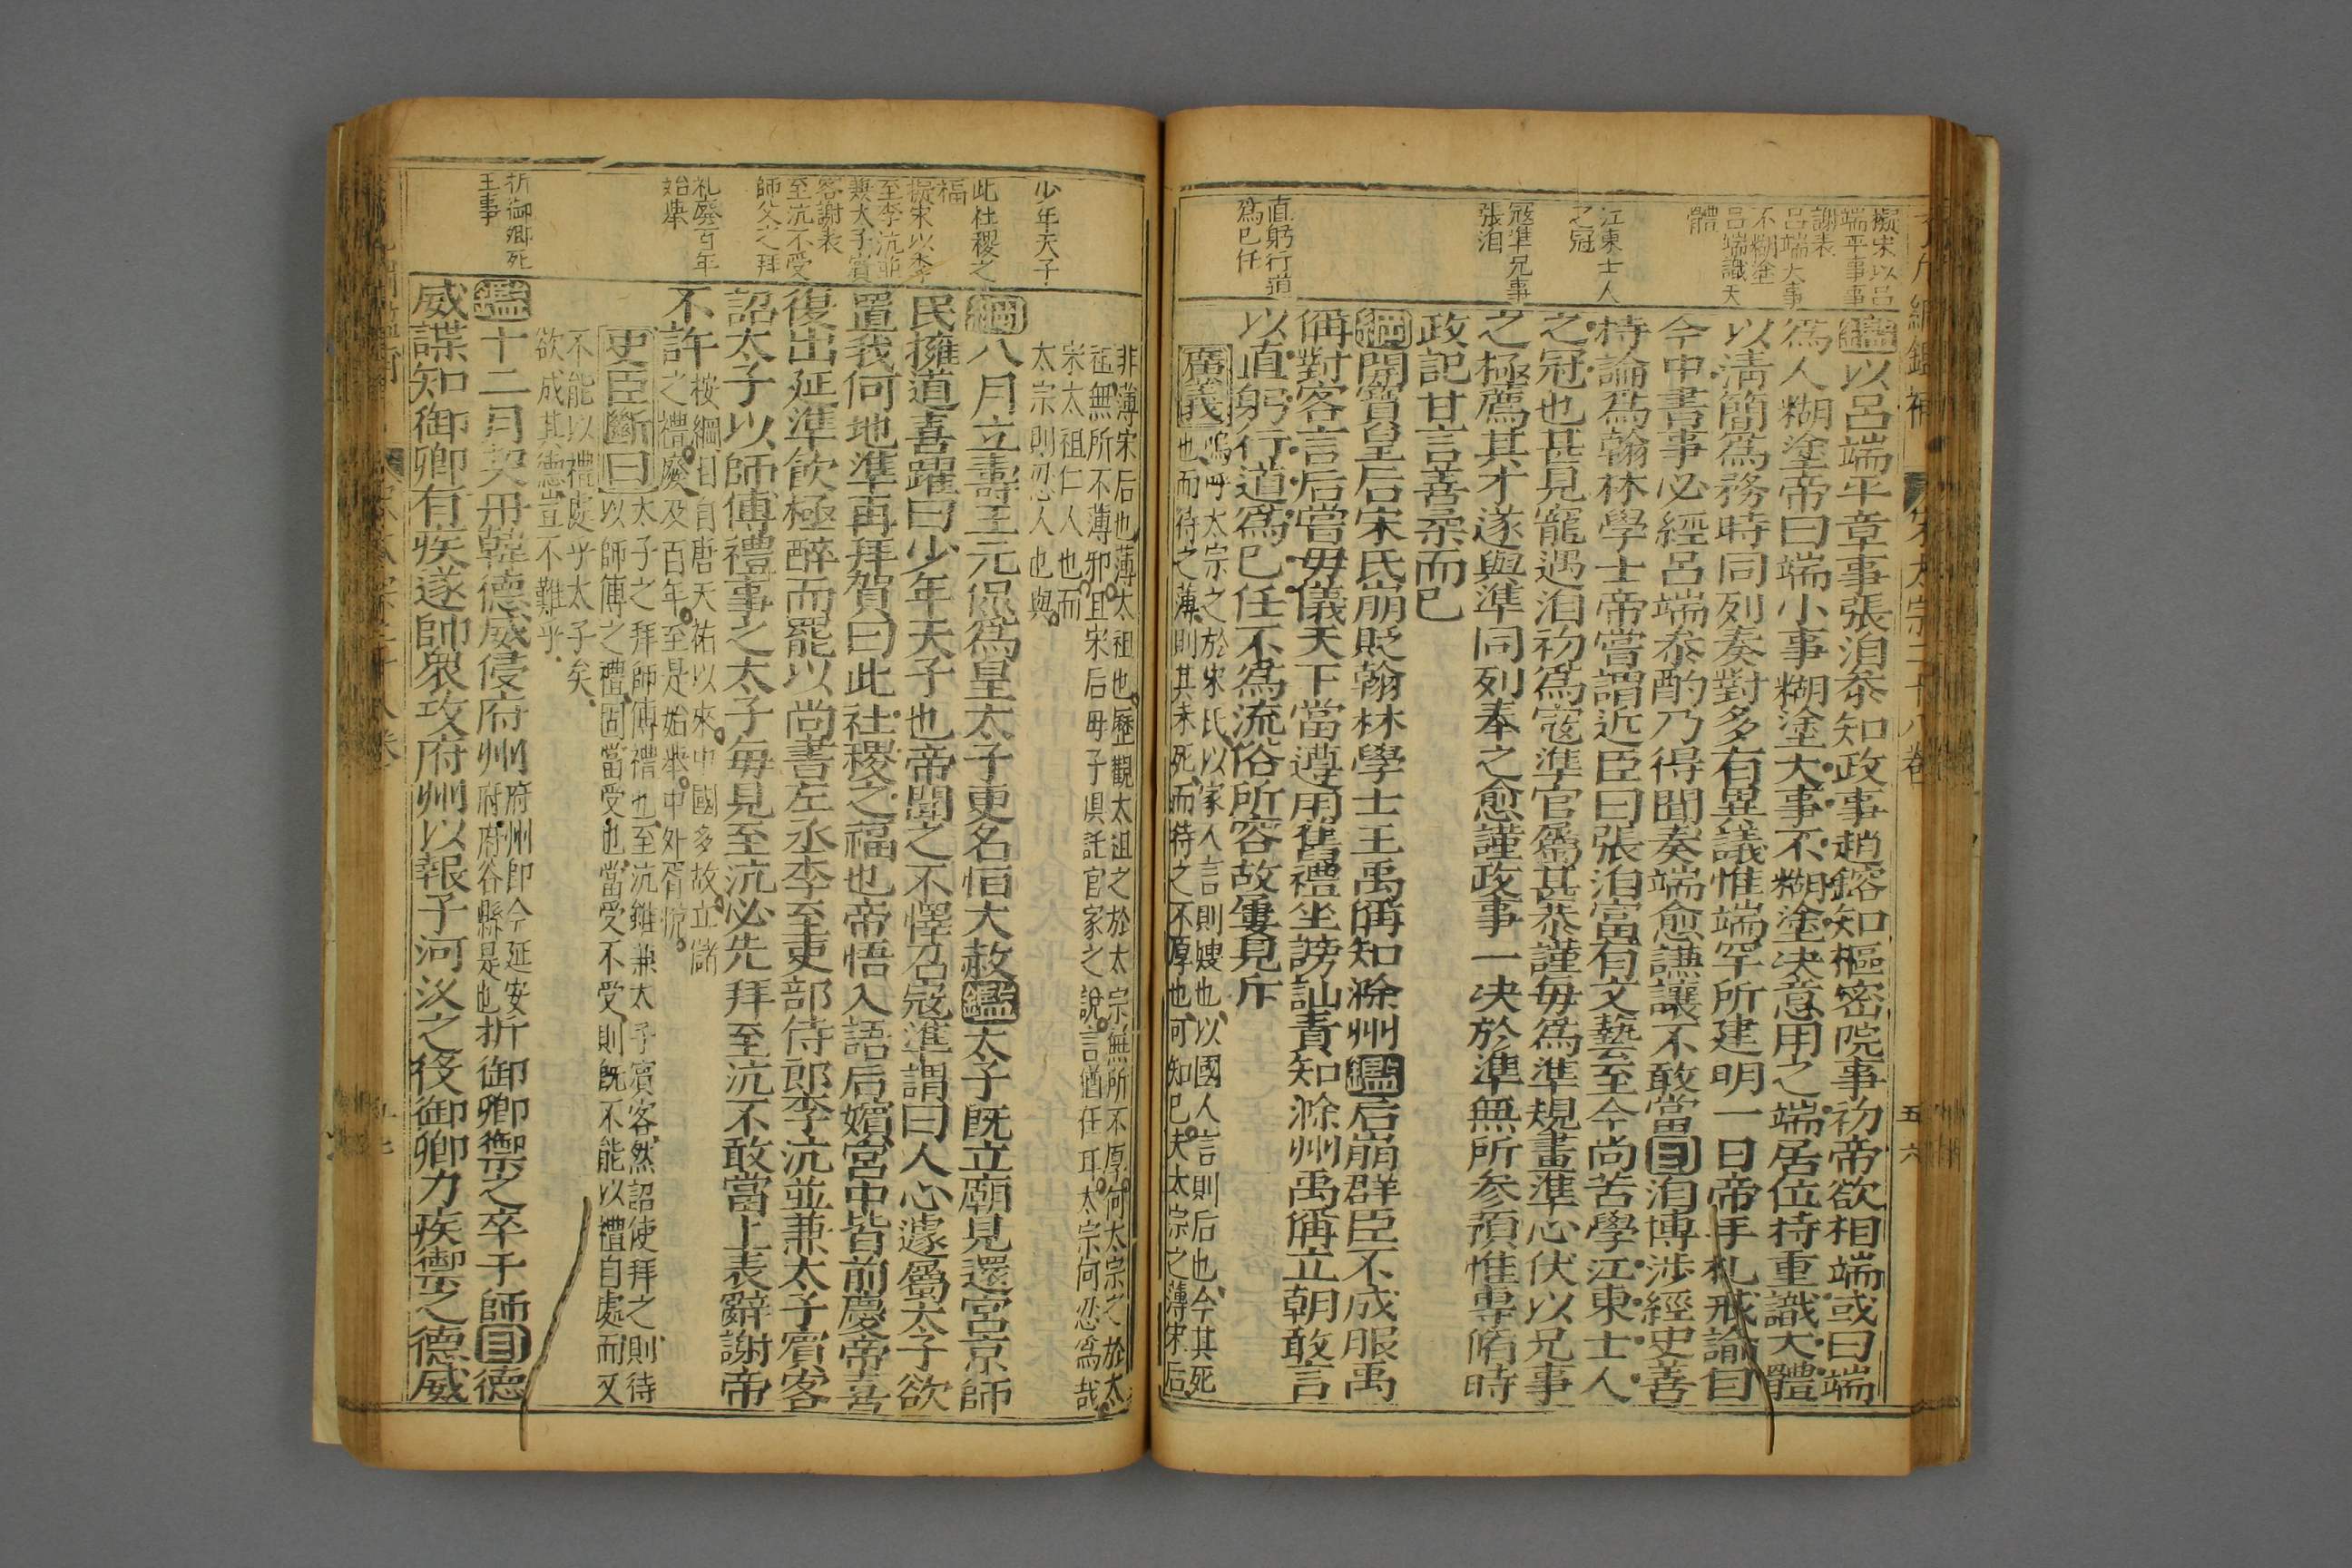 擬宋以呂
端平事事
謝表
呂端大事
不糊塗
呂端識大
體
江東士人
之冠
寇準兄事
張洎
直躬行道
爲己任
鑑以呂端平章事張洎參知政事趙鎔知樞密院事初帝欲相端或曰端
爲人糊塗帝曰端小事糊塗大事不糊塗決意用之端居位持重識大體
以淸簡爲務時同列奏對多有異議惟端罕所建明一日帝手札戒諭自
今中書事必經呂端參酌乃得聞奏端愈謙讓不敢當目洎博涉經史善
持論爲翰林學士帝嘗謂近臣曰張洎富有文藝至今尚苦學江東士人
之冠也甚見寵遇洎初爲寇準官屬甚恭謹每爲準規畫準心伏以兄事
之極薦其才遂與準同列奉之愈謹政事一决於準無所參預惟專脩時
政記甘言善柔而已
綱開寶皇后宋氏崩貶翰林學士王禹偁知滁州鑑后崩群臣不成服禹
偁對客言后嘗毋儀天下當遵用舊禮坐謗訕責知滁州禹偁立朝敢言
以直躬行道爲已任不爲流俗所容故屢見斥
廣義嗚呼太宗之於宋氏以家人言則嫂也以國人言則后也今其死
也而待之薄則其未死而待之不厚也何知已夫太宗之薄宋后
五六
少年天子
此社稷之
福
擬宋以李
至李沆並
兼太子賓
客謝表
至沆不受
師父之拜
礼廢百年
始舉
折御卿死
王事
非薄宋后也薄太祖也歷觀太祖之於太宗無所不厚何太宗之於太
祖無所不薄邪且宋后毋子俱託官家之說言猶在耳太宗何忍爲哉
宋太祖仁人也而
太宗則忍人也與
綱八月立壽王元侃爲皇太子更名恒大赦鑑太子既立廟見還宮京師
民擁道喜躍曰少年天子也帝聞之不懌召寇準謂曰人心遽屬太子欲
置我何地準再拜賀曰此社稷之福也帝悟入語后嬪宮中皆前慶帝喜
復出延準飲極醉而罷以尚書左丞李至吏部侍郎李沆並兼太子賓客
詔太子以師傅禮事之太子每見至沆必先拜至沆不敢當上表辭謝帝
不許按綱目自唐天祐以來中國多故立儲
之禮廢及百年至是始舉中外胥悅
史臣斷曰太子之拜師傅禮也至沆雖兼太子賓客然詔使拜之則待
以師傅之禮固當受也當受不受則既不能以禮自處而又
不能以禮處乎太子矣
欲成其德豈不難乎
鑑十二月契丹韓德威侵府州府州即今延安
府府谷縣是也折御卿禦之卒于師目德
威諜知御卿有疾遂帥衆攻府州以報子河汊之役御卿力疾禦之德威